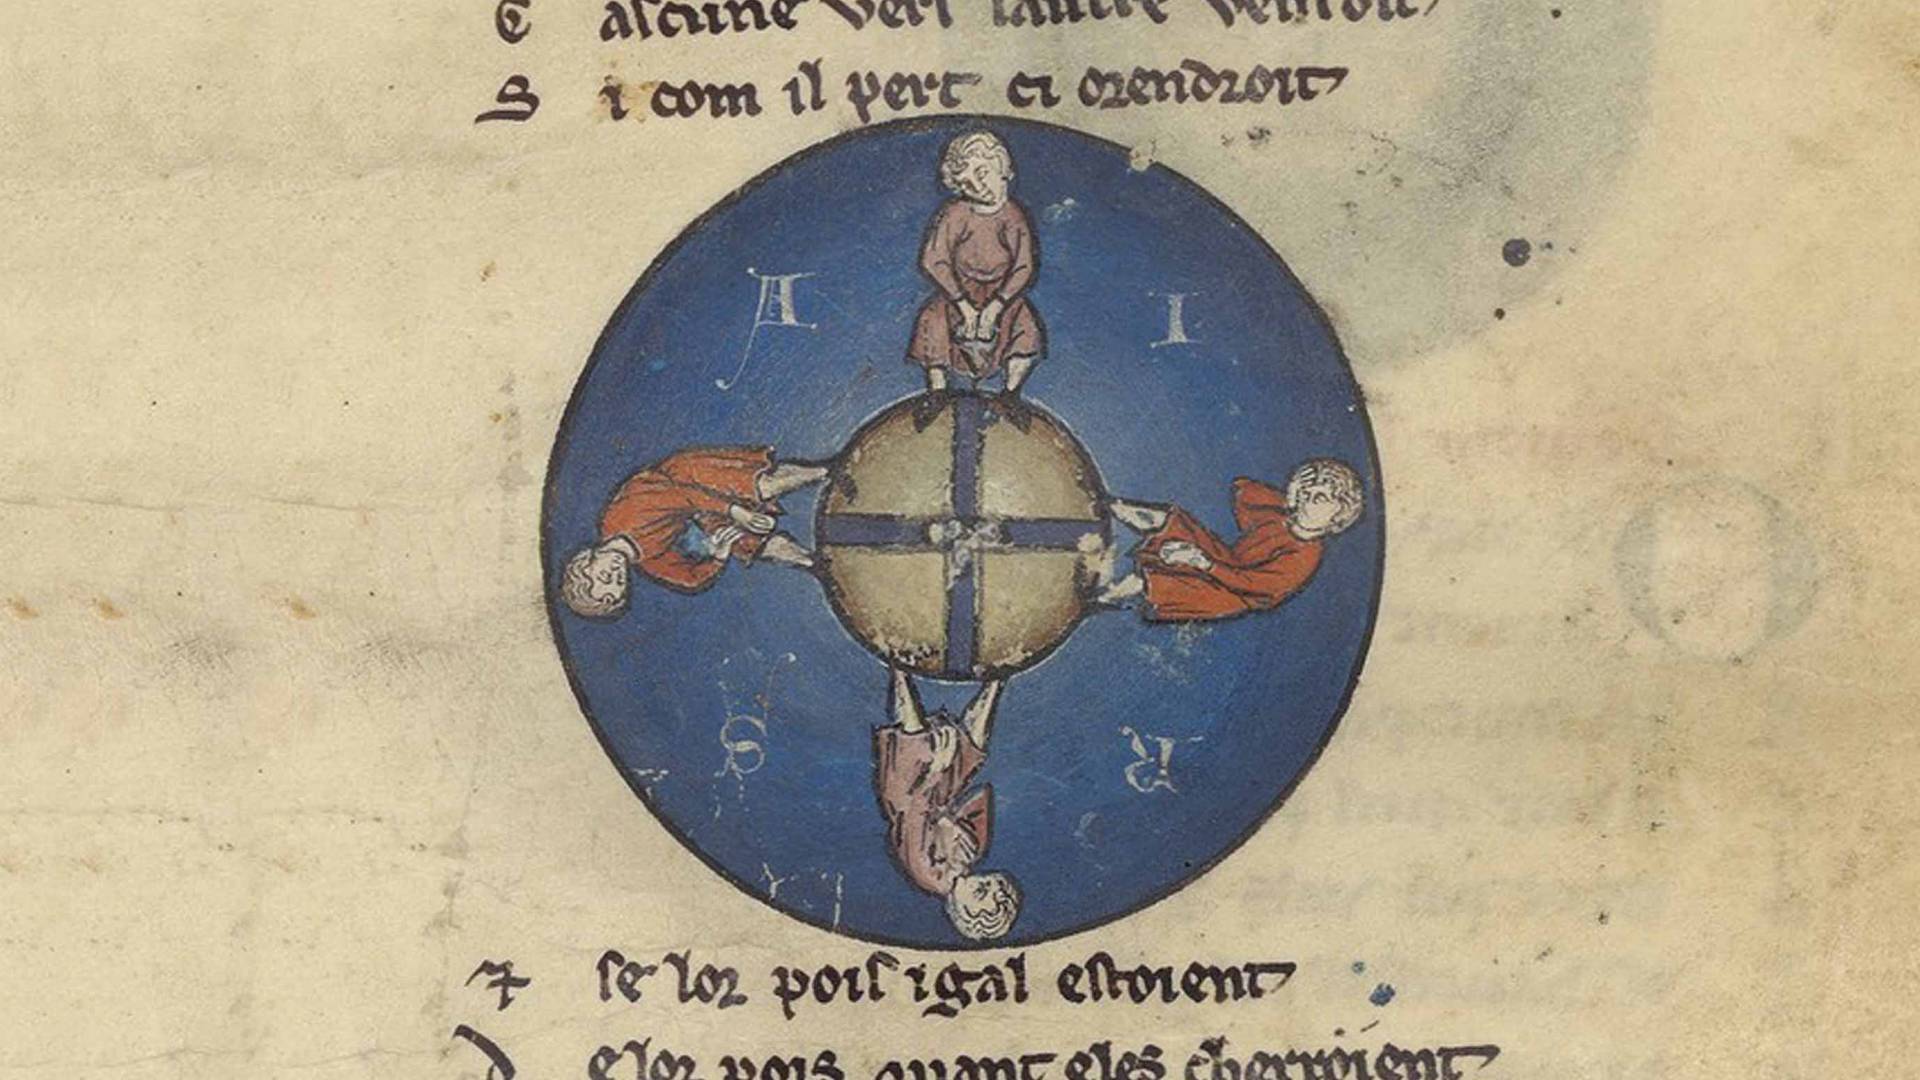 C ascune vers lautre vendroit
S i com il pert ci orendroit
A I
S R
⁊ se lor pois igal estoient
D e lor pois quant eles cherroient